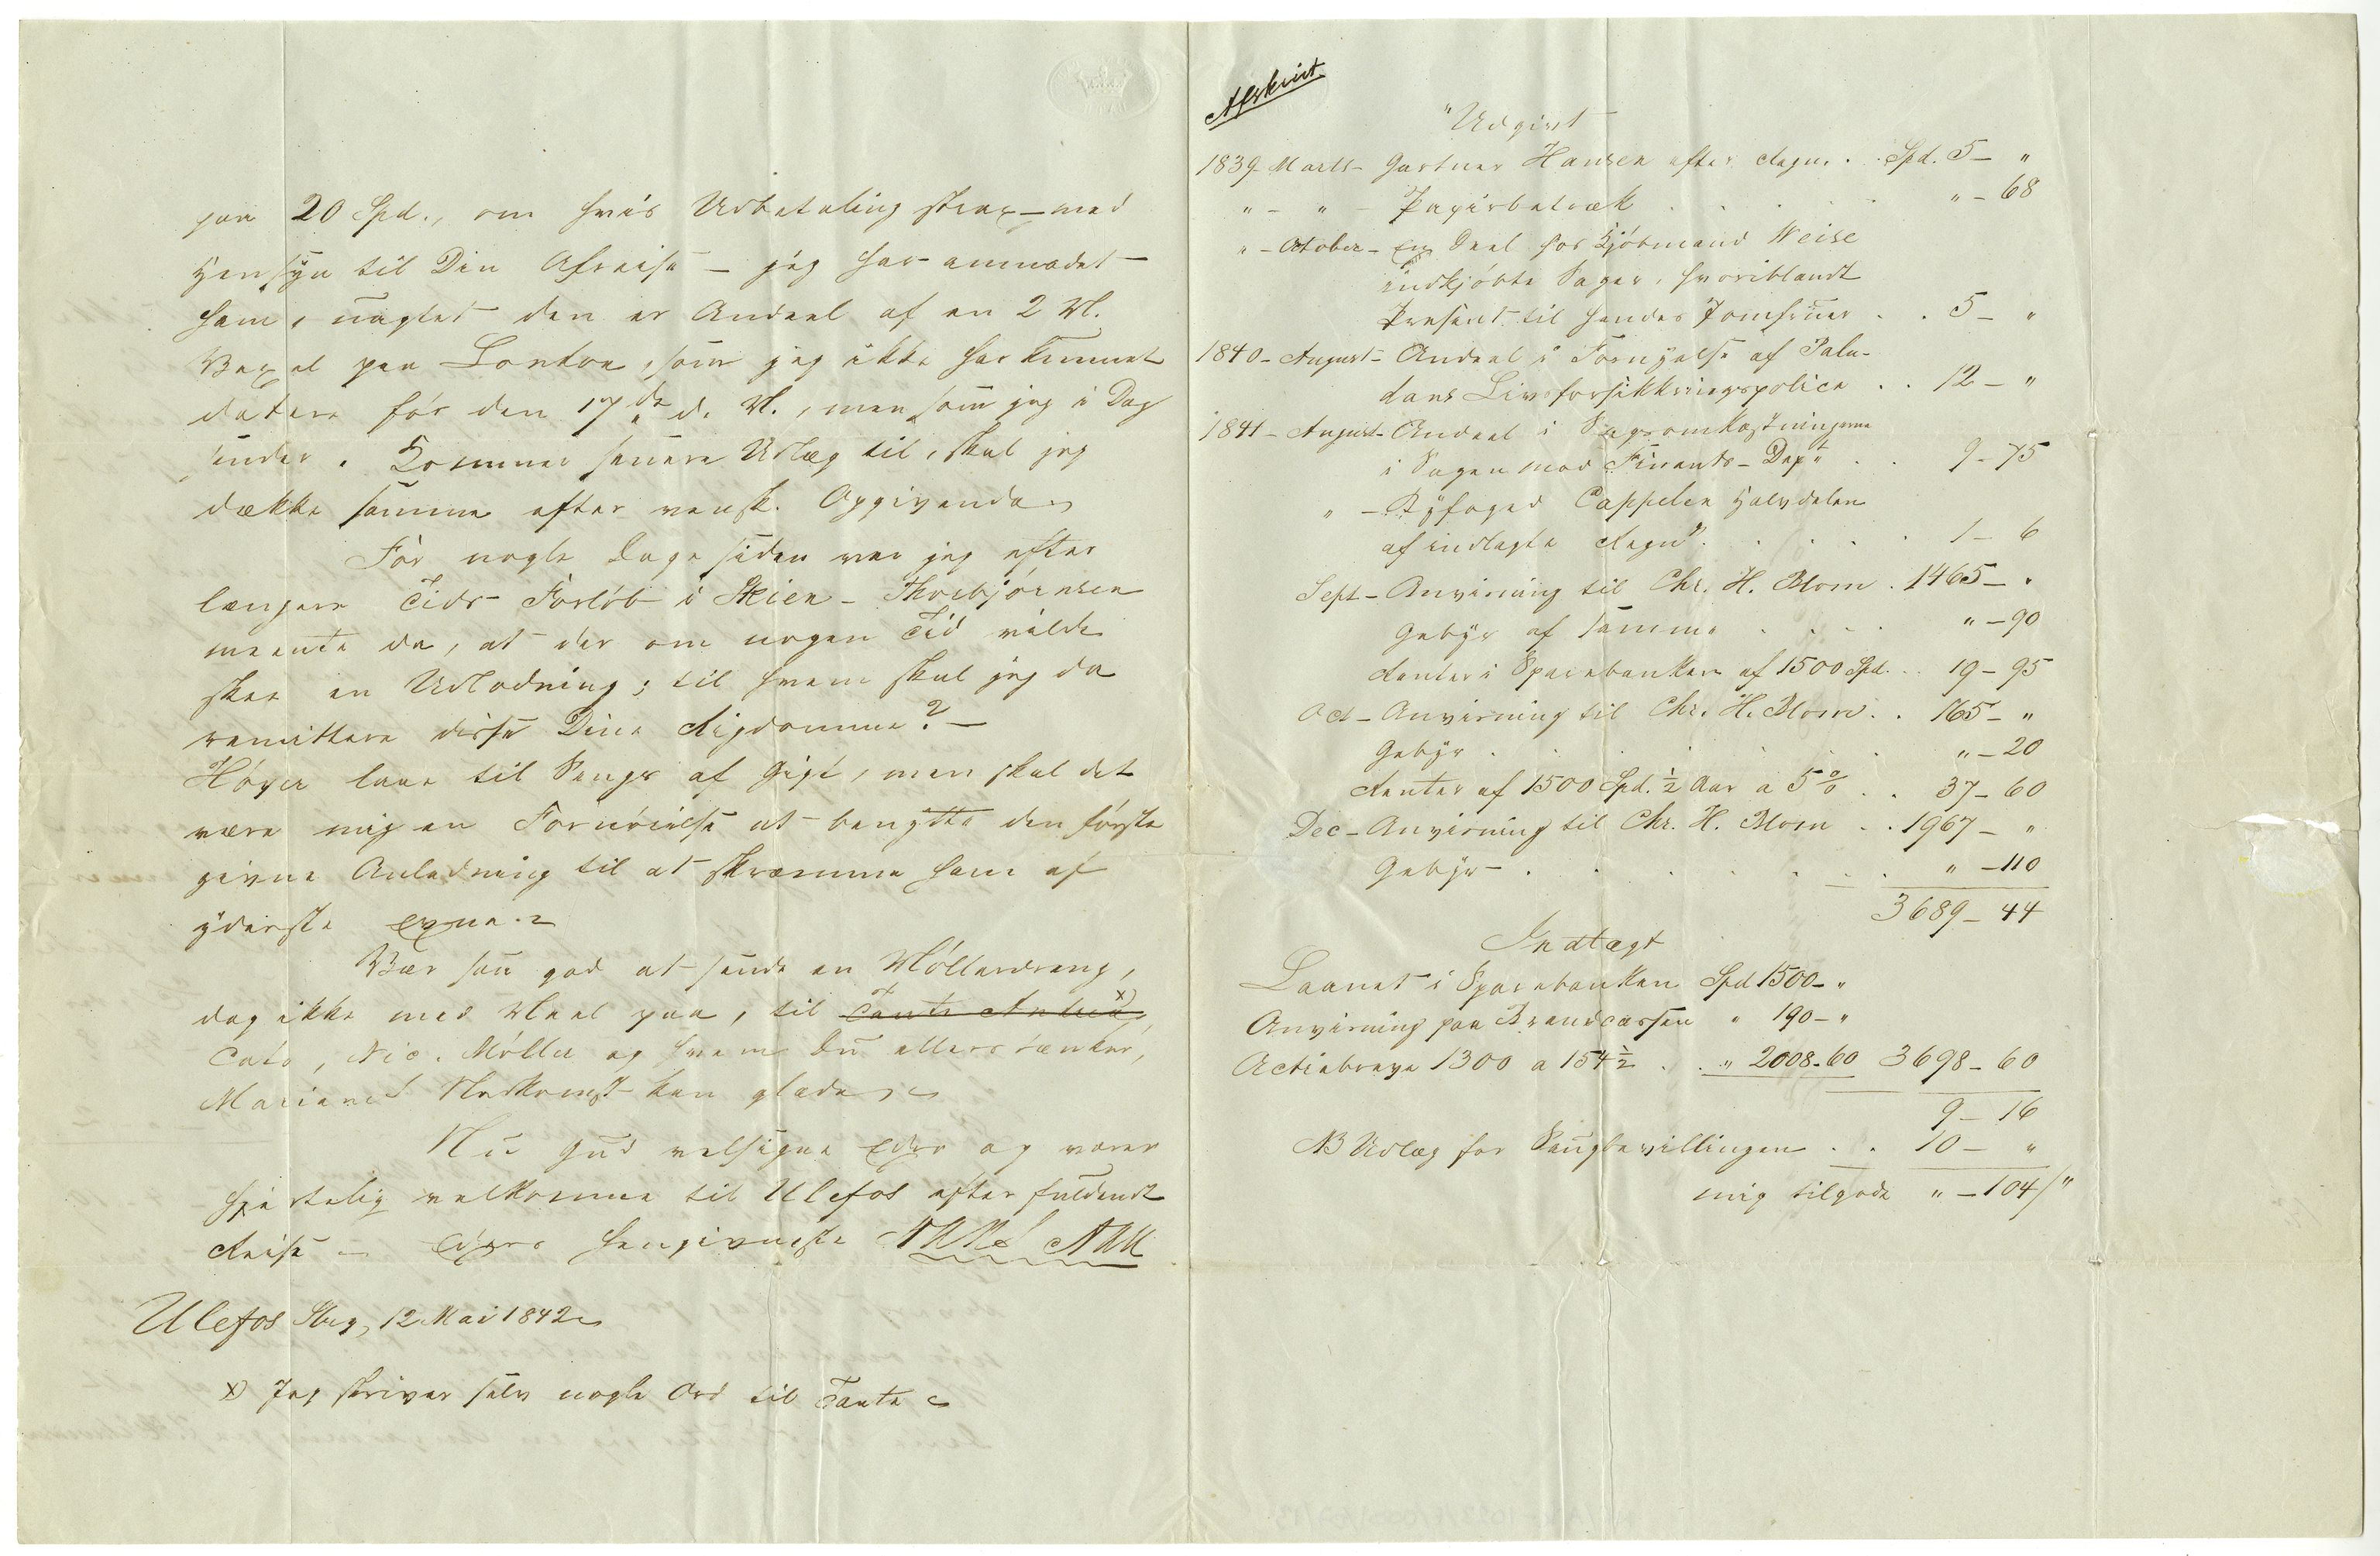 paa 20 Spd., om hvis Udbetaling strax – med
Hensyn til Din Afreise – jeg har anmodet
ham, uagtet den er Andeel af en 2 M.
Vexel paa London, som jeg ikke har kunnet
datere før den 17de d. M., men som jeg i Dag
sender. Kommer senere Udlæg til, skal jeg
dække samme efter vensk. Opgivende
For nogle Dage siden var jeg efter
længere Tids Forløb i Skien – Thorbjørnsen
meente da, at der om nogen Tid vilde
skee en Udlodning; til hvem skal jeg da
remittere disse Dine Rigdomme? –
Høyer laae til Sengs af Gigt, men skal det
være mig en Fornøielse at benytte den første
givne Anledning til at skræmme ham af
yderste Evne.
Vær saa god at sende en Møllerdreng,
dog ikke med Meel paa, til Tante Andrea x),
Cato, Nic. Møller og hvem Du ellers tænker,
Marianes Nedkomst kan glæde
Nu Gud velsigne Eder og værer
hjertelig velkomne til Ulefos efter fuldendt
Reise – Eders hengivneste
Ulefos 12 Mai 1842
x) Jeg skriver selv nogle Ord til Tante
Afskrift
"Udgivt
1839 Marts – Gartner Hansen efter Regn. . . Spd. 5 – "
" – " – Papirbetræk . . . " – 68
" – October – En Deel hos Kjøbmand Weise
indkjøbte Sager, hvoriblandt
Present til hendes Jomfruer . . 5 – "
1840 – August – Andeel i Fornyelse af Palu-
dans Livsforsikkringspolice . . 12 – "
1841 – August – Andeel i Sagsomkostningerne
i Sagen mod Finants-Dept . . 9 – 75
" – Byfoged Cappelen Halvdelen
af indlagte Regn. . . . . 1 – 6
Sept – Anvisning til Chr. H. Blom . 1465 – "
Gebyr af samme . . . . " – 90
Renter i Sparebanken af 1500 Spd. . . 19 – 95
Oct – Anvisning til Chr. H. Blom . . 165 – "
Gebyr . . . . . " – 20
Renter af 1500 Spd. ½ Aar a 5 % . . 37 – 60
Dec – Anvisning til Chr. H. Blom . . 1967 – "
Gebyr . . . . . " – 110
3689 – 44
Indtægt
Laanet i Sparebanken Spd 1500 – "
Anvisning paa Brandcassen " 190 – "
Actiebreve 1300 a 154½ . . " 2008 – 60 3698 – 60
9 – 16
NB Udlæg for Bevillingen . . 10 – "
mig tilgode " – 104/"